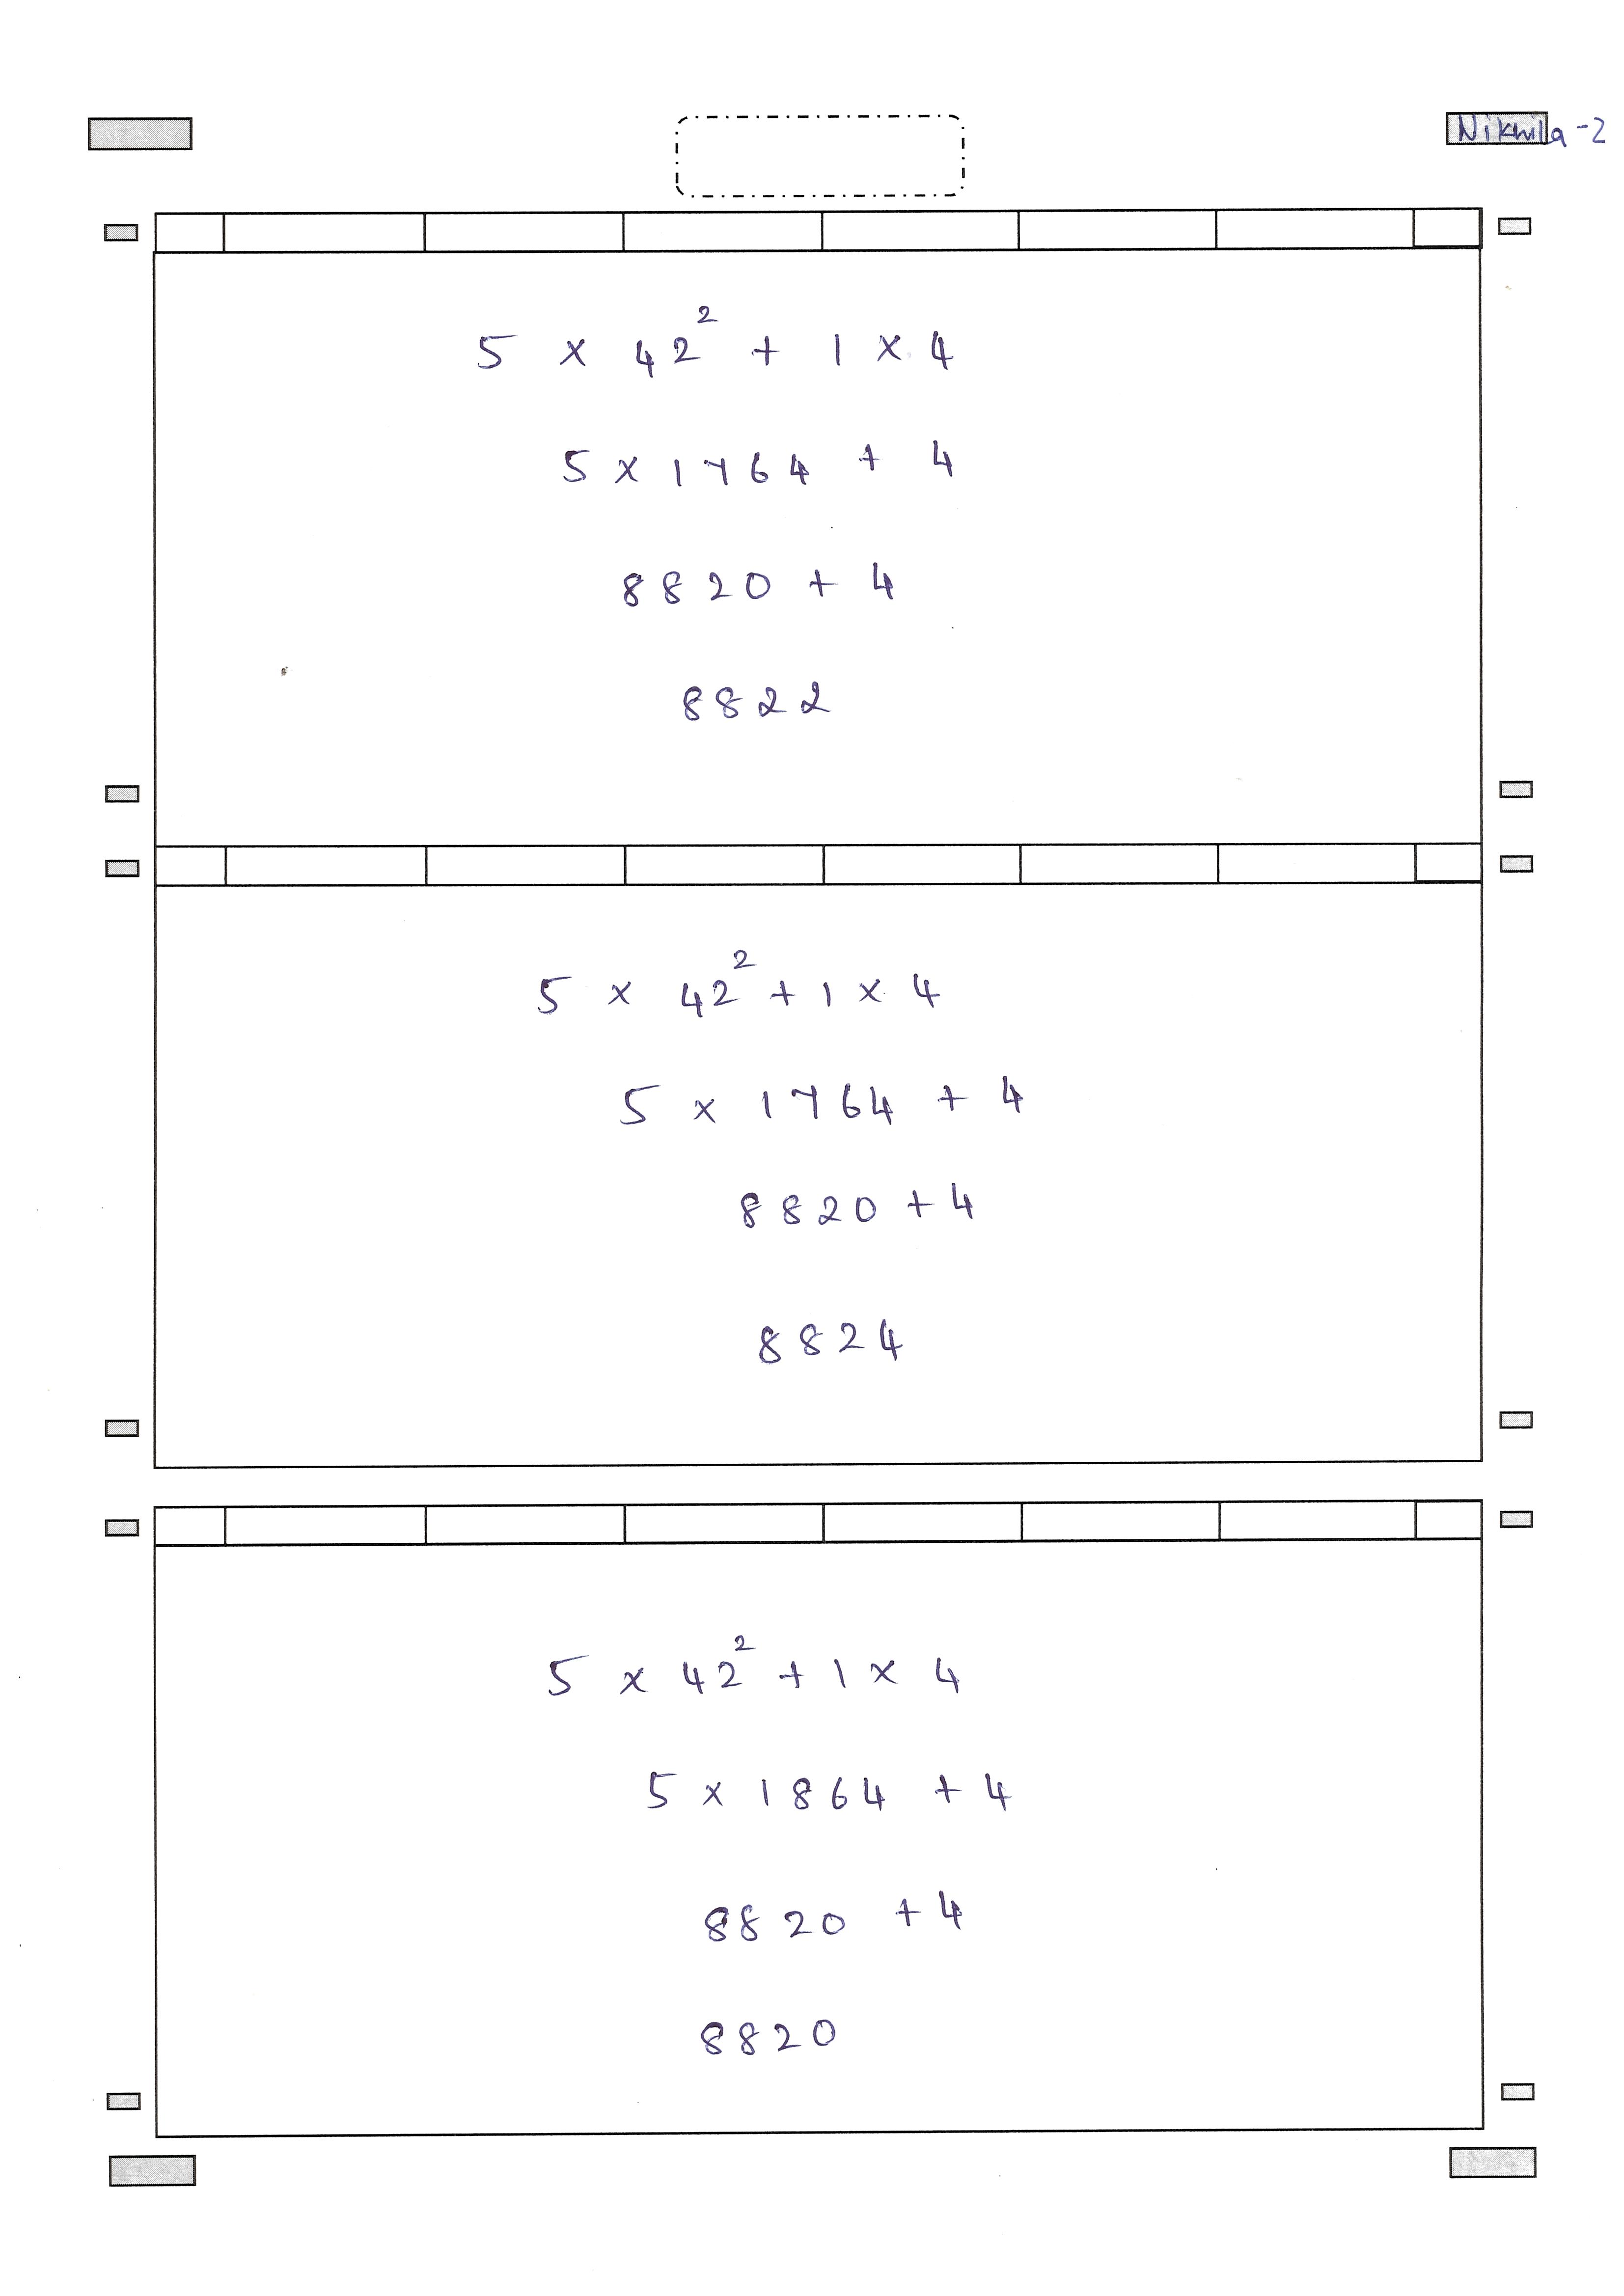 Nikhila-2
5 × 42² + 1 × 4
5 × 1764 + 4
8820 + 4
8822
5 × 42² + 1 × 4
5 × 1764 + 4
8820 + 4
8824
5 × 42² + 1 × 4
5 × 1864 + 4
8820 + 4
8820